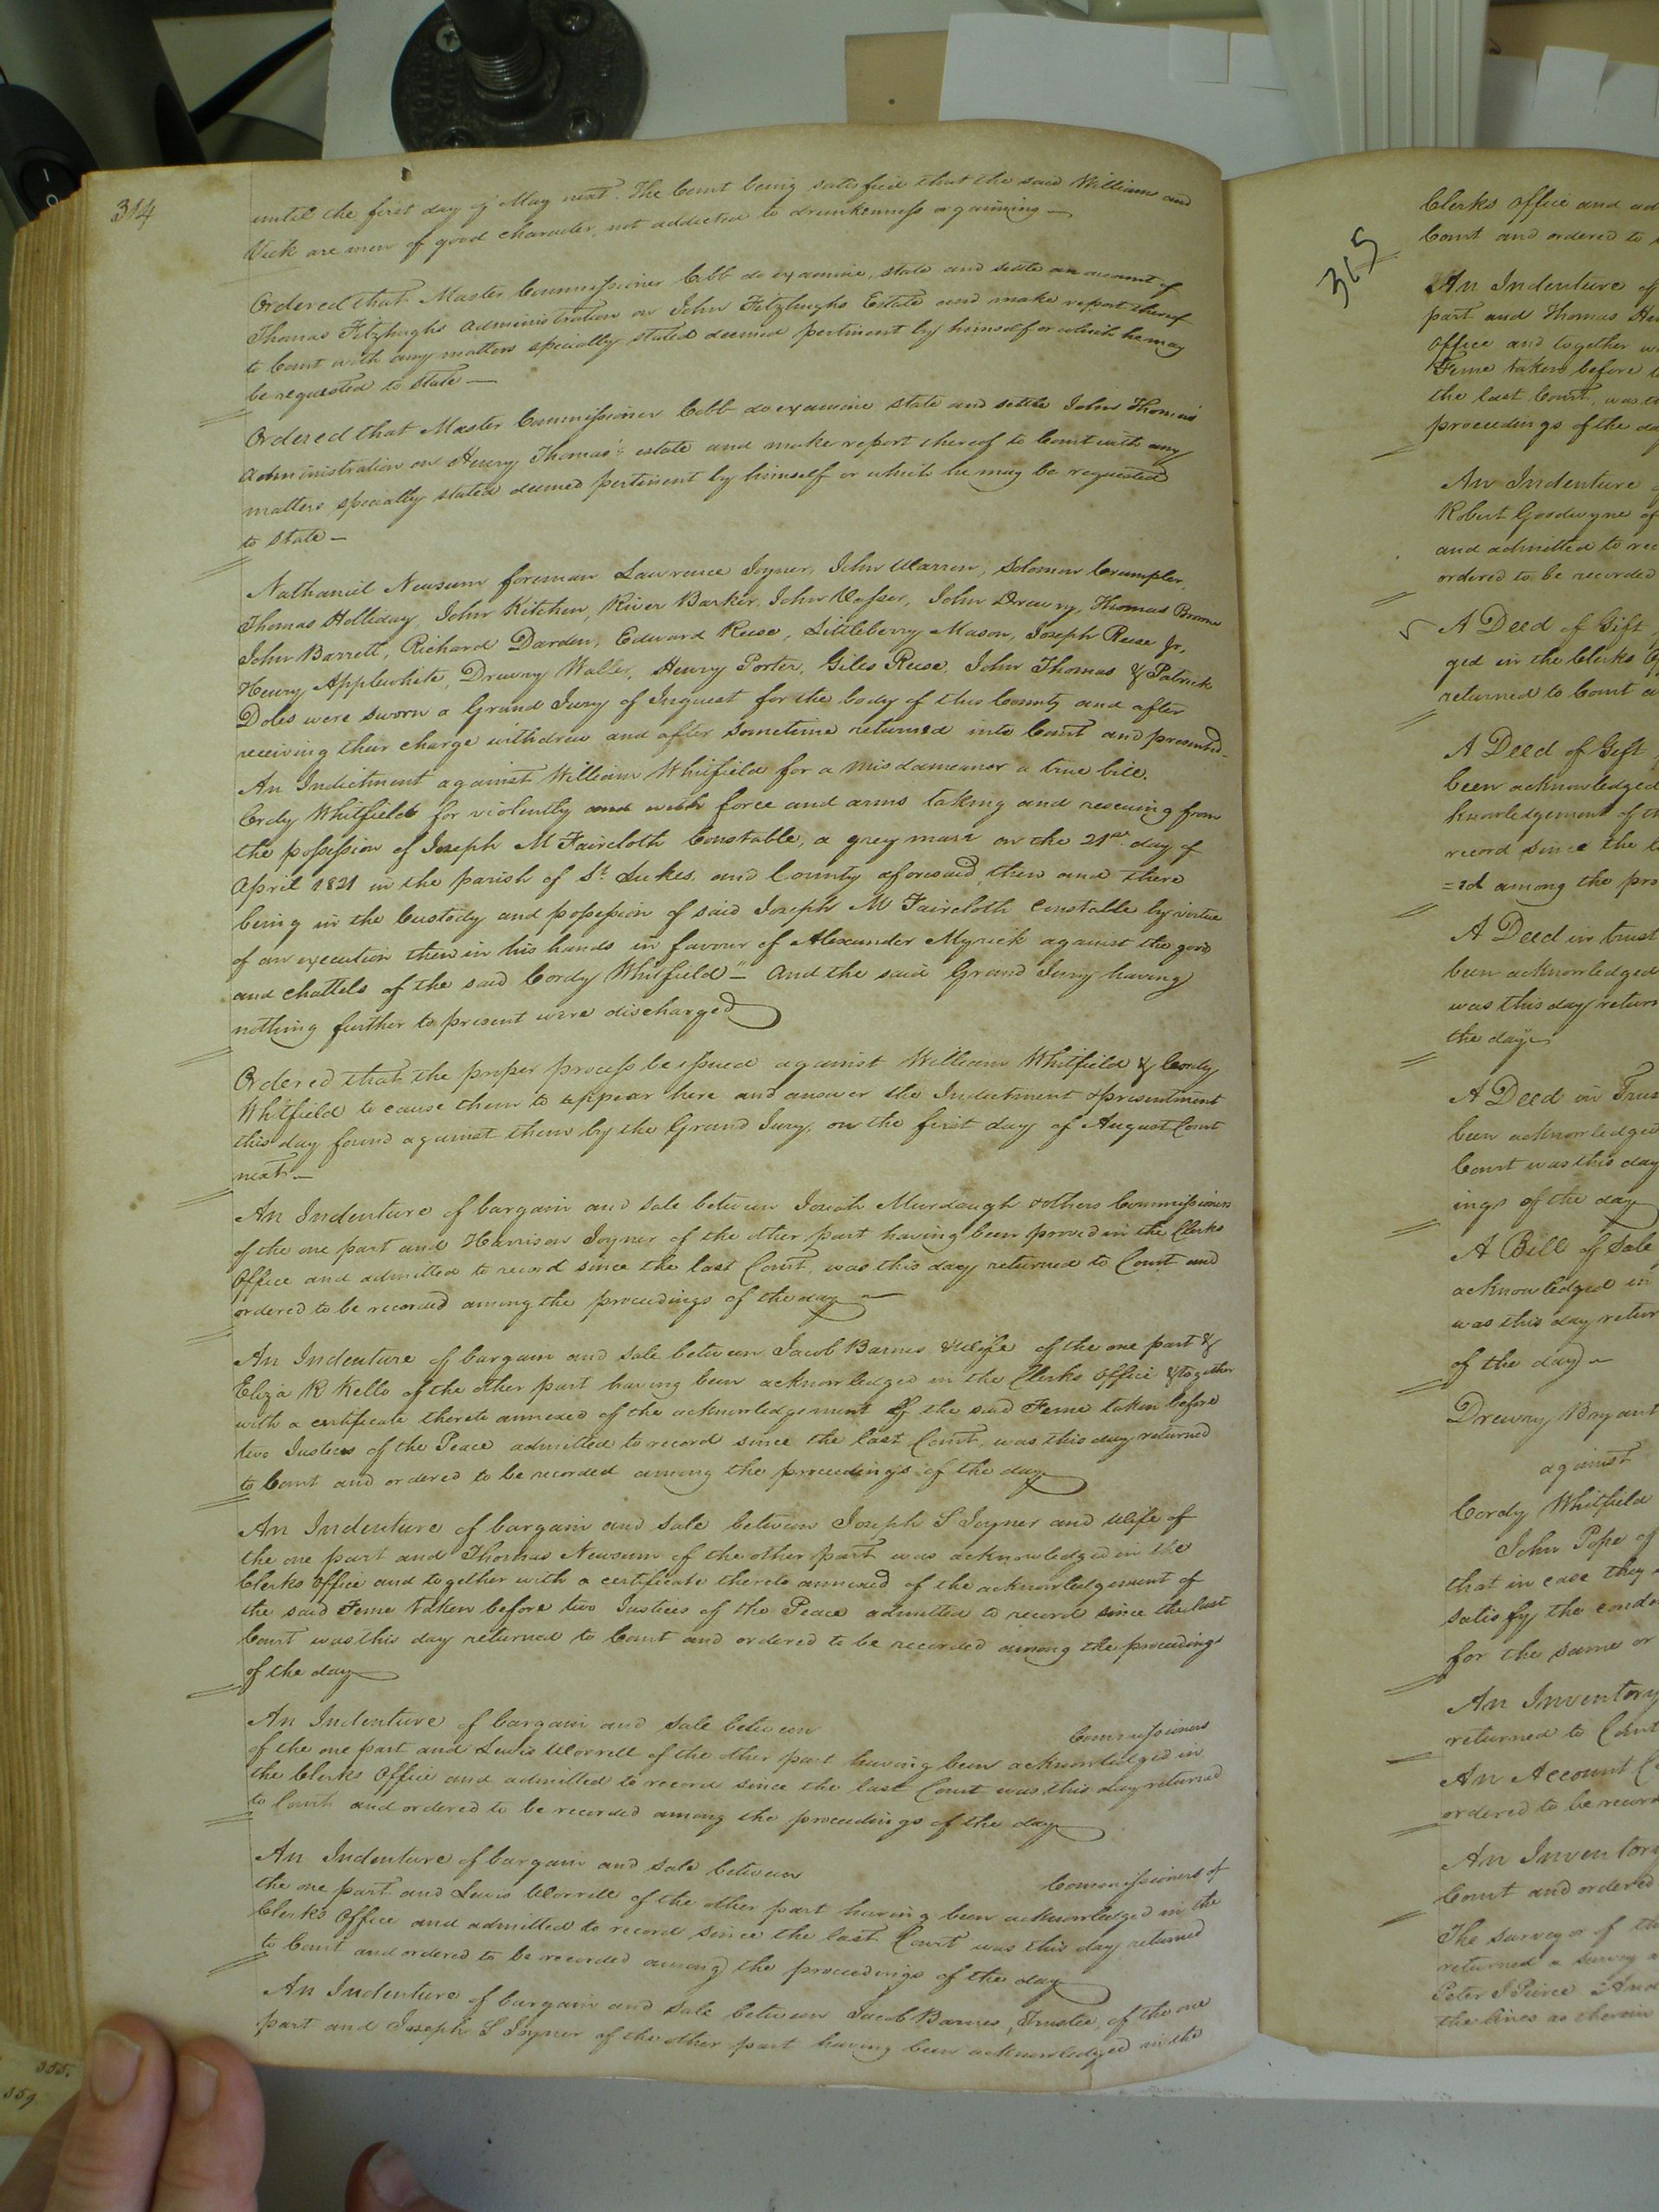 314
until the first day of May next. The Court being satisfied that the said William and
Vick are men of good character, not addicted to drunkenness or gaming —
Ordered that Master Commissioner Cobb do examine, state and settle an account of
Thomas Fitzhughs administration on John Fitzhughs Estate and make report thereof
to Court with any matters specially stated deemed pertinent by himself or which he may
be requested to state —
Ordered that Master Commissioner Cobb do examine state and settle John Thomas'
administration on Henry Thomas's estate and make report thereof to Court with any
matters specially stated deemed pertinent by himself or which he may be requested
to state —
Nathaniel Newsum foreman Lawrence Joyner, John Warren, Solomon Crumpler,
Thomas Holliday, John Kitchen, River Barker, John Vasser, John Drewry, Thomas Browne
John Barrett, Richard Darden, Edward Reese, Littleberry Mason, Joseph Reese Jr,
Henry Applewhite, Drewry Waller, Henry Porter, Giles Reese, John Thomas & Patrick
Doles were sworn a Grand Jury of Inquest for the body of this County and after
receiving their charge withdrew and after sometime returned into Court and presented.
An Indictment against William Whitfield for a misdameanor a true bill.
Cordy Whitfield for violently and with force and arms taking and rescuing from
the possession of Joseph M Faircloth Constable, a grey mare on the 21st day of
April 1821 in the parish of St Lukes and County aforesaid then and there
being in the Custody and possession of said Joseph M Faircloth Constable by virtue
of an execution then in his hands in favour of Alexander Myrick against the goods
and chattels of the said Cordy Whitfield" — And the said Grand Jury having
nothing further to present were discharged
Ordered that the proper process be issued against William Whitfield & Cordy
Whitfield to cause them to appear here and answer the Indictment & presentment
this day found against them by the Grand Jury, on the first day of August Court
next —
An Indenture of bargain and sale between Josiah Murdaugh & others Commissioners
of the one part and Harrison Joyner of the other part having been proved in the Clerks
Office and admitted to record since the last Court, was this day returned to Court and
ordered to be recorded among the proceedings of the day —
An Indenture of bargain and sale between Jacob Barnes & Wife of the one part &
Eliza R Kello of the other part having been acknowledged in the Clerks Office & together
with a certificate thereto annexed of the acknowledgement of the said Feme taken before
two Justices of the Peace admitted to record since the last Court, was this day returned
to Court and ordered to be recorded among the proceedings of the day
An Indenture of bargain and sale between Joseph S Joyner and Wife of
the one part and Thomas Newsum of the other part was acknowledged in the
Clerks Office and together with a certificate thereto annexed of the acknowledgement of
the said Feme taken before two Justices of the Peace admitted to record since the last
Court was this day returned to Court and ordered to be recorded among the proceedings
of the day
An Indenture of bargain and sale between Commissioners
of the one part and Lewis Worrell of the other part having been acknowledged in
the Clerks Office and admitted to record since the last Court was this day returned
to Court and ordered to be recorded among the proceedings of the day
An Indenture of bargain and sale between Commissioners of
the one part and Lewis Worrell of the other part having been acknowledged in the
Clerks Office and admitted to record since the last Court was this day returned
to Court and ordered to be recorded among the proceedings of the day
An Indenture of bargain and sale between Jacob Barnes, Trustee, of the one
part and Joseph S Joyner of the other part having been acknowledged in the
355.
359
315
Clerks Office and ad
Court and ordered to
An Indenture of
part and Thomas
Office and together
Feme taken before
the last Court, was
proceedings of the da
An Indenture
Robert Goodwyne of
and admitted to rec
ordered to be recorded
A Deed of Gift
ged in the Clerks
returned to Court
A Deed of Gift
been acknowledged
knowledgement of th
record since the
=ed among the pro
A Deed in trust
been acknowledged
was this day return
the day
A Deed in Trus
been acknowledged
Court was this day
ings of the day
A Bill of Sale
acknowledged in
was this day retur
of the day —
Drewry Bryant
against
Cordy Whitfield
John Pope of
that in case they
satisfy the cond
for the same or
An Inventory
returned to Court
An Account
ordered to be record
An Inventory
Court and ordered
The surveyor of th
returned a survey
Peter J Pierce And
the lines as therein